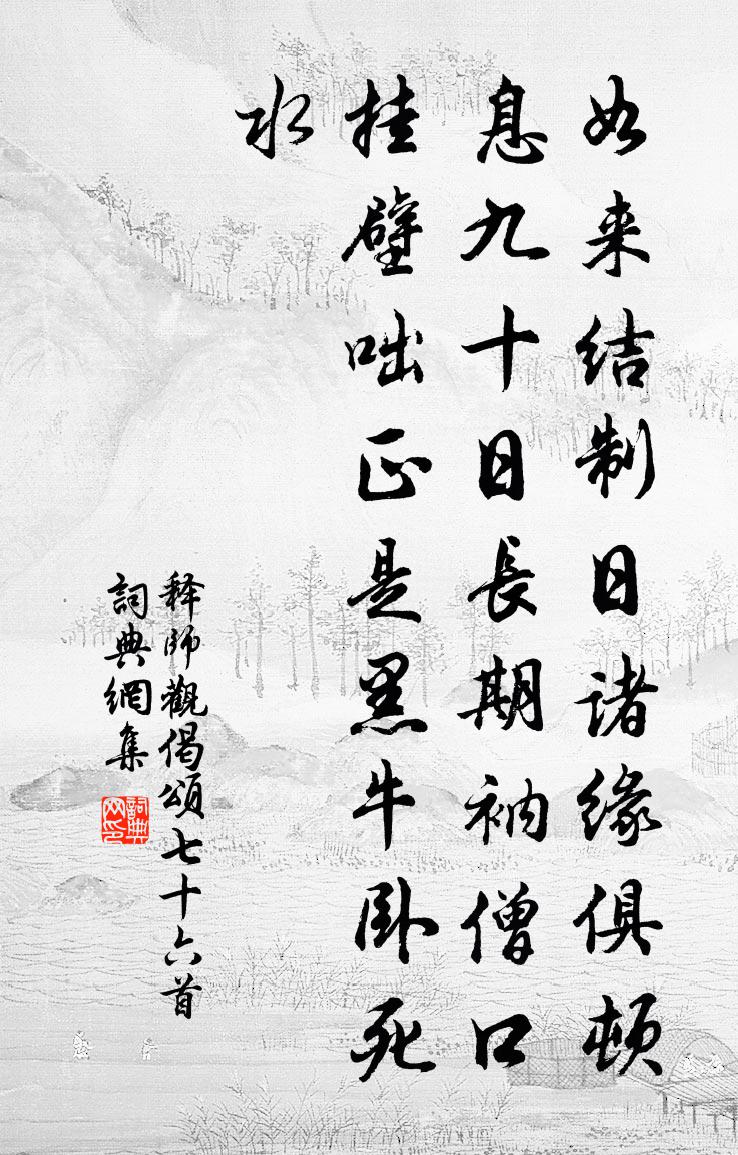 如来结制日诸缘俱顿
息九十日長期衲僧口
挂壁咄正是黑牛卧死
水
释師觀偈頌七十六首
詞典網集
詞典
网印